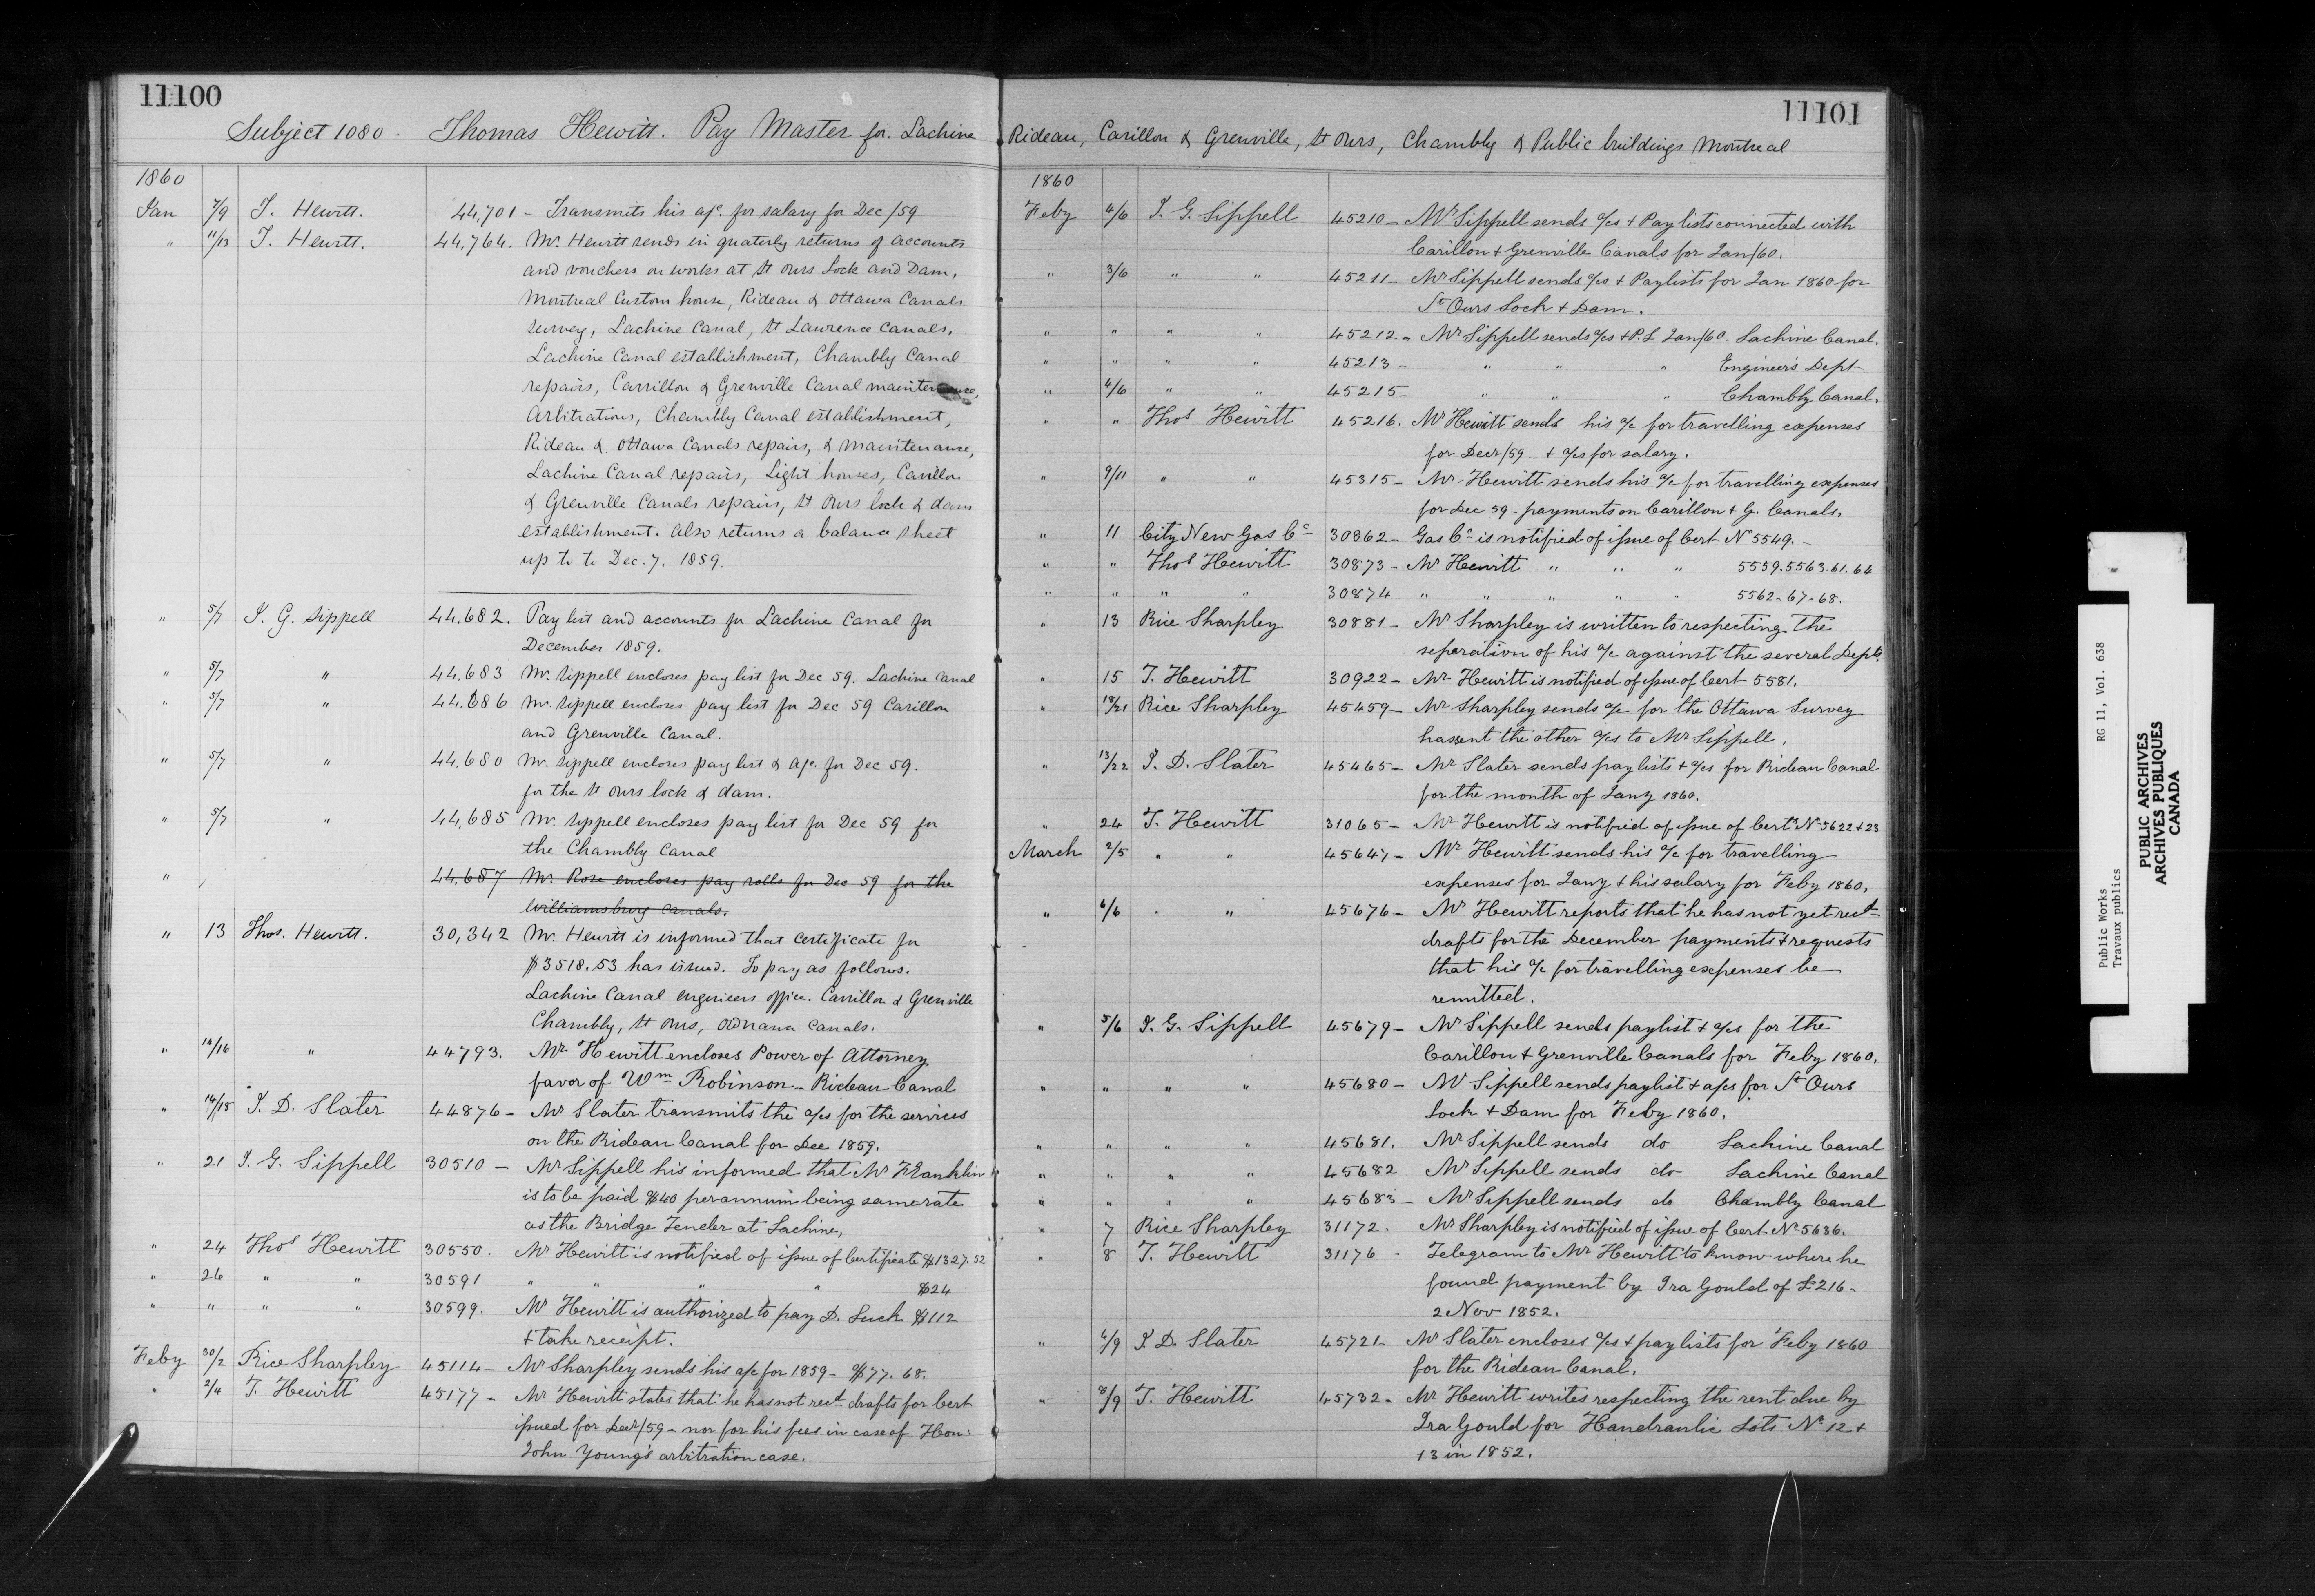 11100
Subject 1080 - Thomas Hewitt. Pay Master for Lachine
1860
Jan 7/9 T. Hewitt. 44,701 - Transmits his a/c. for salary for Dec/59
" 11/13 T. Hewitt. 44,764. Mr. Hewitt sends in quaterly returns of accounts
and vouchers on works at St Ours Lock and Dam,
Montreal Custom house, Rideau & Ottawa Canals
survey, Lachine Canal, St Lawrence Canals,
Lachine Canal establishment, Chambly Canal
repairs, Carrillon & Grenville Canal maintenance,
Arbitrations, Chambly Canal establishment,
Rideau & Ottawa Canals repairs, & maintenance,
Lachine Canal repairs, Light houses, Carillon
& Grenville Canals repairs, St Ours lock & dam
establishment. Also returns a balance sheet
up to to Dec. 7. 1859.
" 5/7 J. G. Sippell 44,682. Pay list and accounts for Lachine Canal for
December 1859.
" 5/7 " 44,683 Mr. Sippell encloses pay list for Dec 59. Lachine Canal
" 5/7 " 44,686 Mr. Sippell encloses pay list for Dec 59 Carillon
and Grenville Canal.
" 5/7 " 44,680 Mr. Sippell encloses pay list & a/c. for Dec 59.
for the St Ours lock & dam.
" 5/7 " 44,685 Mr. Sippell encloses pay list for Dec 59 for
the Chambly Canal
" 44,687 Mr. Rose encloses pay rolls for Dec 59 for the
Williamsburg Canals.
" 13 Thos. Hewitt. 30,342 Mr. Hewitt is informed that certificate for
$3518.53 has issued. To pay as follows.
Lachine Canal engineers office. Carrillon & Grenville
Chambly, St Ours, Ottawa Canals.
" 14/16 " 44793. Mr Hewitt encloses Power of Attorney
favor of Wm Robinson - Rideau Canal
" 14/18 J. D. Slater 44876 - Mr Slater transmits the a/cs for the services
on the Rideau Canal for Dec 1859.
" 21 J. G. Sippell 30510 - Mr Sippell his informed that Mr Franklin
is to be paid $40 per annum being same rate
as the Bridge Tender at Lachine,
" 24 Thos Hewitt 30550. Mr Hewitt is notified of issue of Certificate $1327.52
" 26 " " 30591 " " " " $24
" " " " 30599. Mr Hewitt is authorized to pay D. Luck $112
& take receipt.
Feby 30/2 Rice Sharpley 45114 - Mr Sharpley sends his a/c for 1859 - $77.68.
" 2/4 T. Hewitt 45177 - Mr Hewitt states that he has not recd drafts for Cert
issued for Decr/59 - nor for his fees in case of Hon:
John Young's arbitration case.
11101
Rideau, Carillon & Grenville, St Ours, Chambly & Public buildings Montreal
1860
Feby 4/6 J. G. Sippell 45210 - Mr Sippell sends a/cs & Pay lists connected with
Carillon & Grenville Canals for Jan/60.
" 3/6 " " 45211 - Mr Sippell sends a/cs & Paylists for Jan 1860 for
St Ours Lock & Dam.
" " " " 45212 - Mr Sippell sends a/cs & P.L Jan/60. Lachine Canal.
" " " " 45213 - " " " Engineer's Dept
" 4/6 " " 45215 - " " " Chambly Canal.
" " Thos Hewitt 45216. Mr Hewitt sends his a/c for travelling expenses
for Decr/59 - & a/cs for salary.
" 9/11 " " 45315 - Mr Hewitt sends his a/c for travelling expenses
for Dec 59 - payments on Carillon & G. Canals.
" 11 City New Gas Co 30862 - Gas Co is notified of issue of Cert No 5549. -
" " Thos Hewitt 30873 - Mr Hewitt " " " 5559.5563.61.64
" " " " 30874 " " " " " 5562-67-68.
" 13 Rice Sharpley 30881 - Mr Sharpley is written to respecting the
separation of his a/c against the several Depts.
" 15 T. Hewitt 30922 - Mr Hewitt is notified of issue of Cert 5581.
" 18/21 Rice Sharpley 45459 - Mr Sharpley sends a/c for the Ottawa Survey
has sent the other a/cs to Mr Sippell.
" 13/22 J. D. Slater 45465 - Mr Slater sends paylists & a/cs for Rideau Canal
for the month of Jany 1860.
" 24 T. Hewitt 31065 - Mr Hewitt is notified of issue of Certs No 5622 & 23
March 2/5 " " 45647 - Mr Hewitt sends his a/c for travelling
expenses for Jany & his salary for Feby 1860.
" 6/6 " " 45676 - Mr Hewitt reports that he has not yet recd
drafts for the December payments & requests
that his a/c for travelling expenses be
remitted.
" 5/6 J. G. Sippell 45679 - Mr Sippell sends paylist & a/cs for the
Carillon & Grenville Canals for Feby 1860.
" " " " 45680 - Mr Sippell sends paylist & a/cs for St Ours
Lock & Dam for Feby 1860.
" " " " 45681. Mr Sippell sends do Lachine Canal
" " " " 45682 Mr Sippell sends do Lachine Canal
" " " " 45683 - Mr Sippell sends do Chambly Canal
" 7 Rice Sharpley 31172. Mr Sharpley is notified of issue of Cert No 5636.
" 8 T. Hewitt 31176 - Telegram to Mr Hewitt to know where he
found payment by Ira Gould of £216 -
2 Nov 1852.
" 6/9 J. D. Slater 45721 - Mr Slater encloses a/cs & paylists for Feby 1860
for the Rideau Canal.
" 8/9 T. Hewitt 45732 - Mr Hewitt writes respecting the rent due by
Ira Gould for Handraulic Lots No 12 &
13 in 1852.
Public Works RG 11, Vol. 638
Travaux publics
PUBLIC ARCHIVES
ARCHIVES PUBLIQUES
CANADA